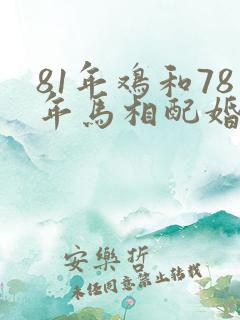 81年鸡和78
年马相配婚
安樂折
未经同意禁止转载